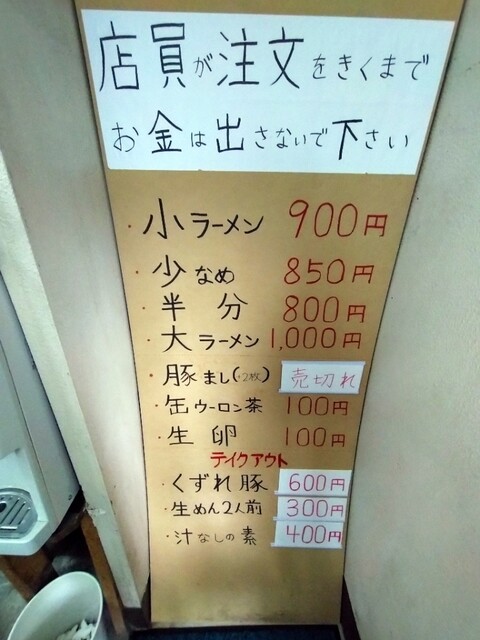 店員が注文をきくまで
お金は出さないで下さい
・小ラーメン 900円
・少なめ 850円
・半分 800円
・大ラーメン 1,000円
・豚まし(+2枚) 売切れ
・缶ウーロン茶 100円
・生卵 100円
テイクアウト
・くずれ豚 600円
・生めん2人前 300円
・汁なしの素 400円